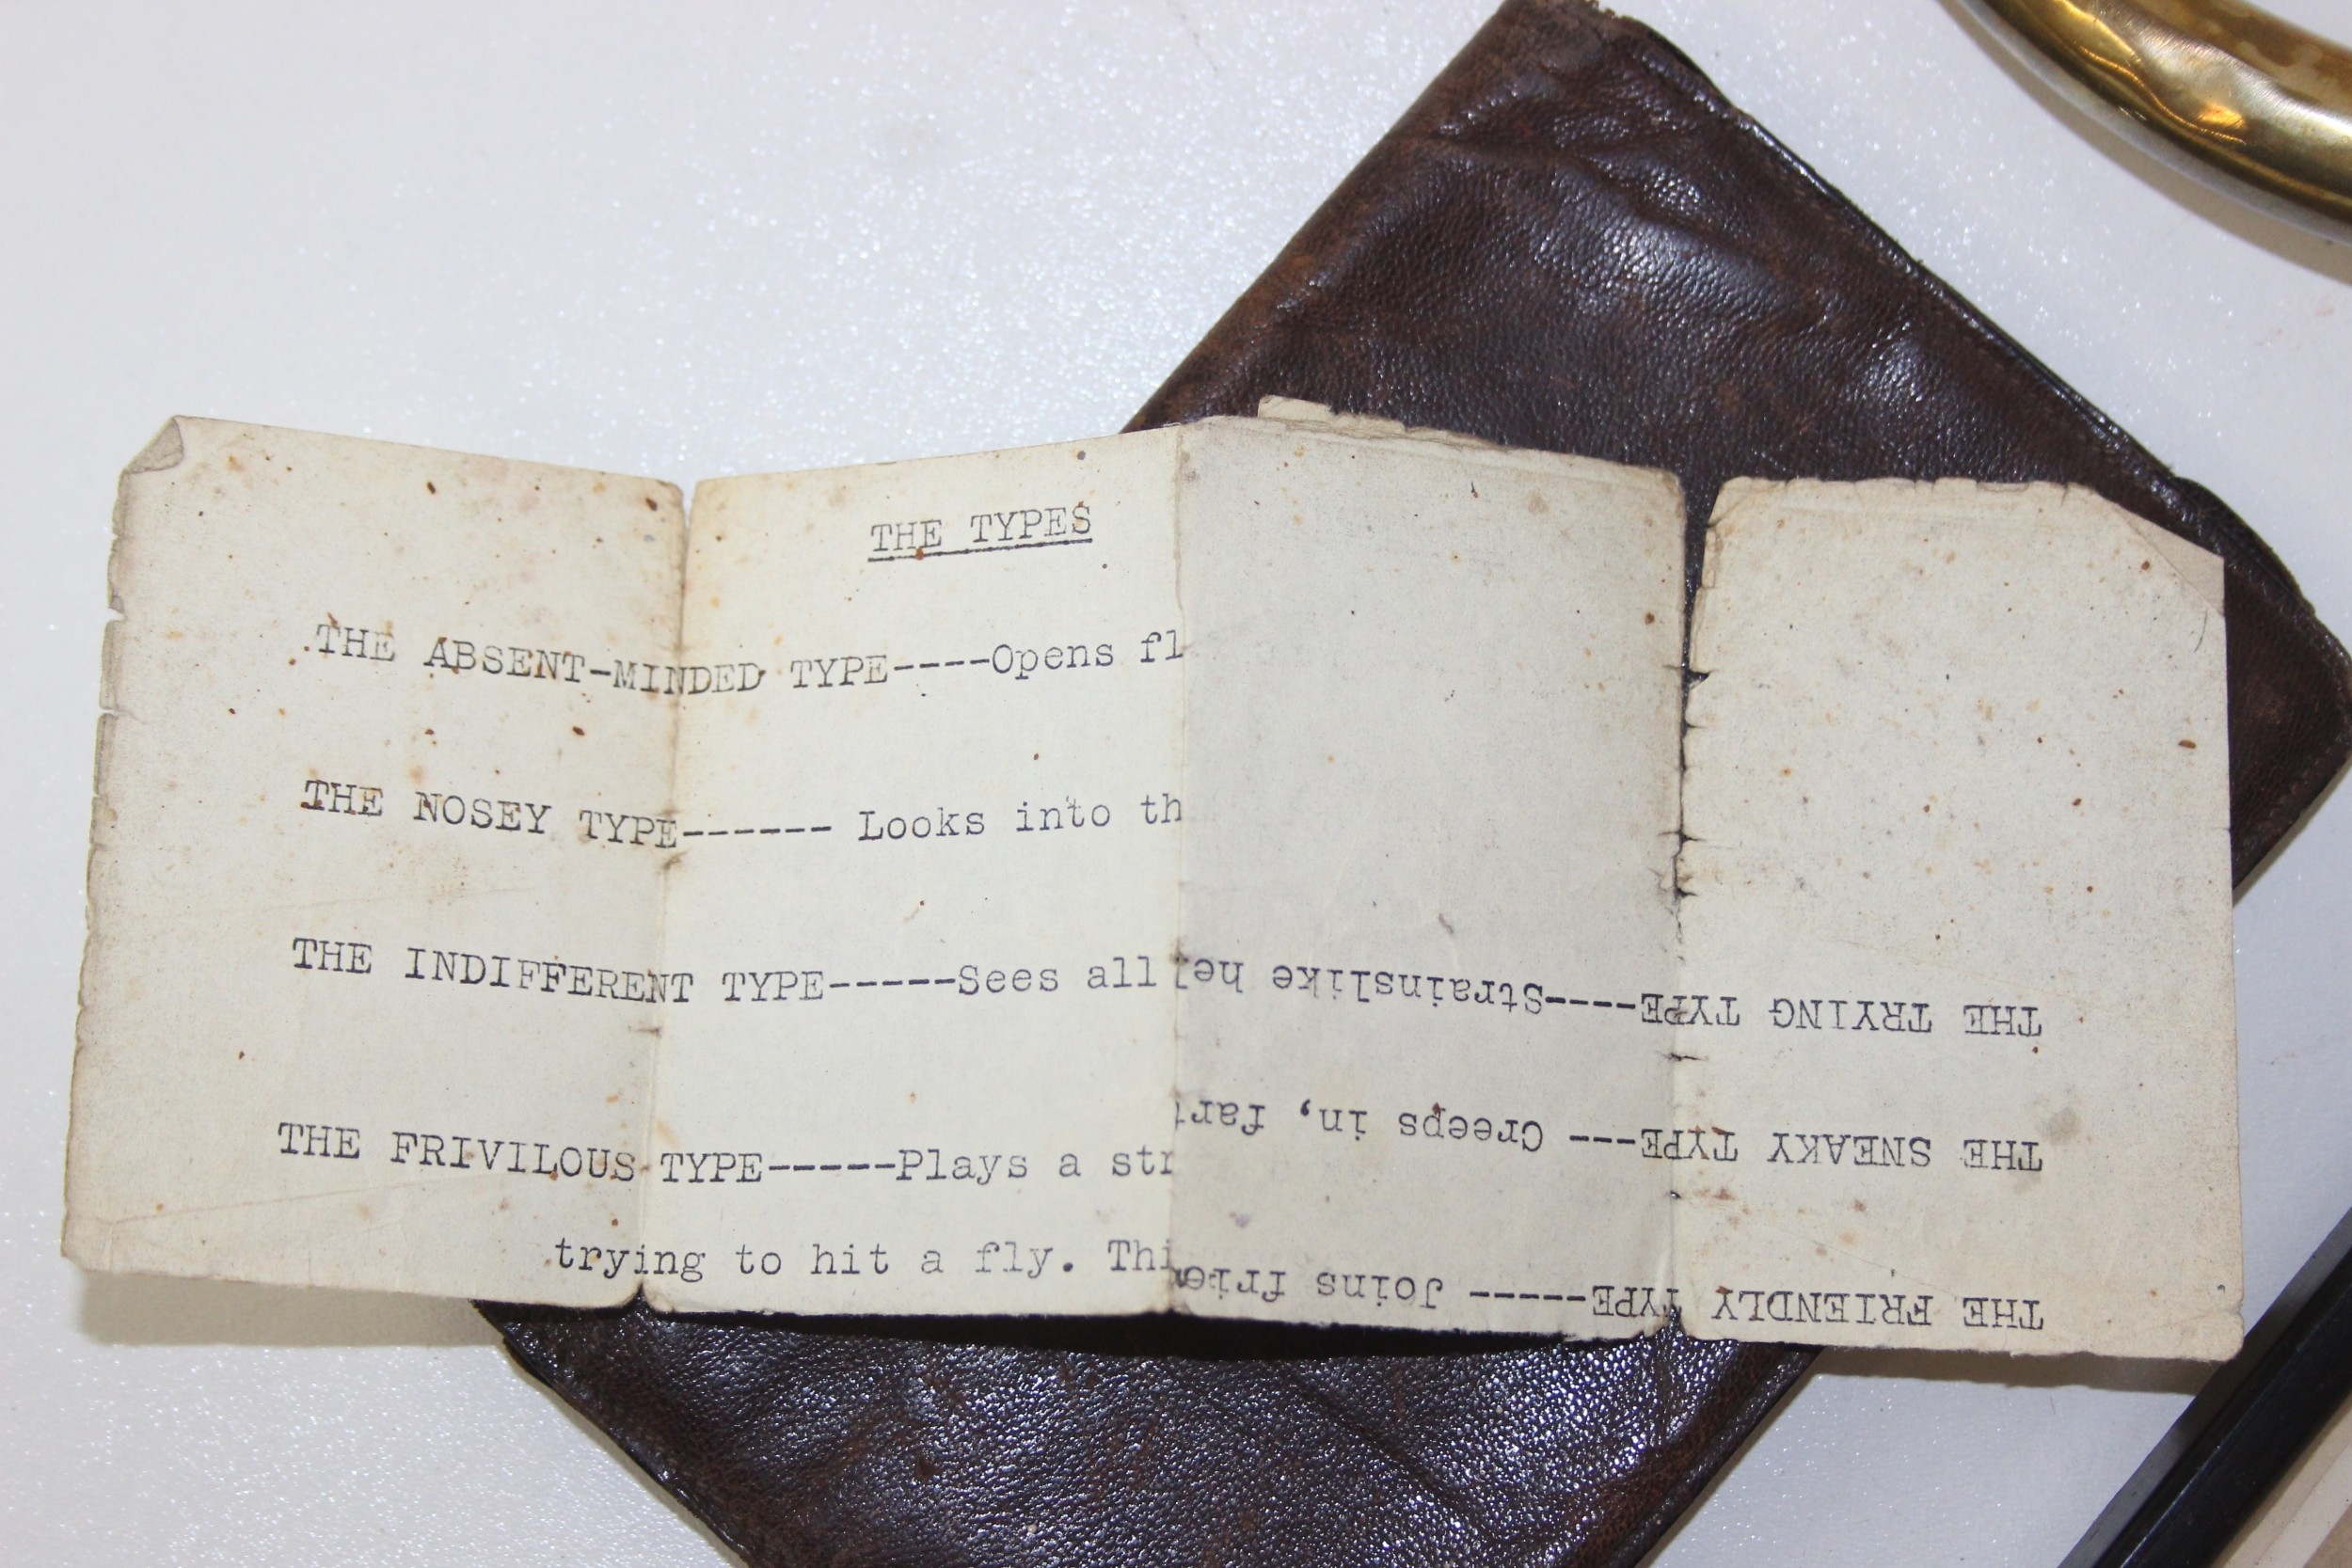 THE TYPES
THE ABSENT-MINDED TYPE----Opens fl
THE NOSEY TYPE------ Looks into th
THE INDIFFERENT TYPE-----Sees all
THE FRIVILOUS TYPE-----Plays a str
trying to hit a fly. Thi
THE FRIENDLY TYPE----- Joins frie
THE SNEAKY TYPE--- Creeps in, fart
THE TRYING TYPE----Strainslike hel